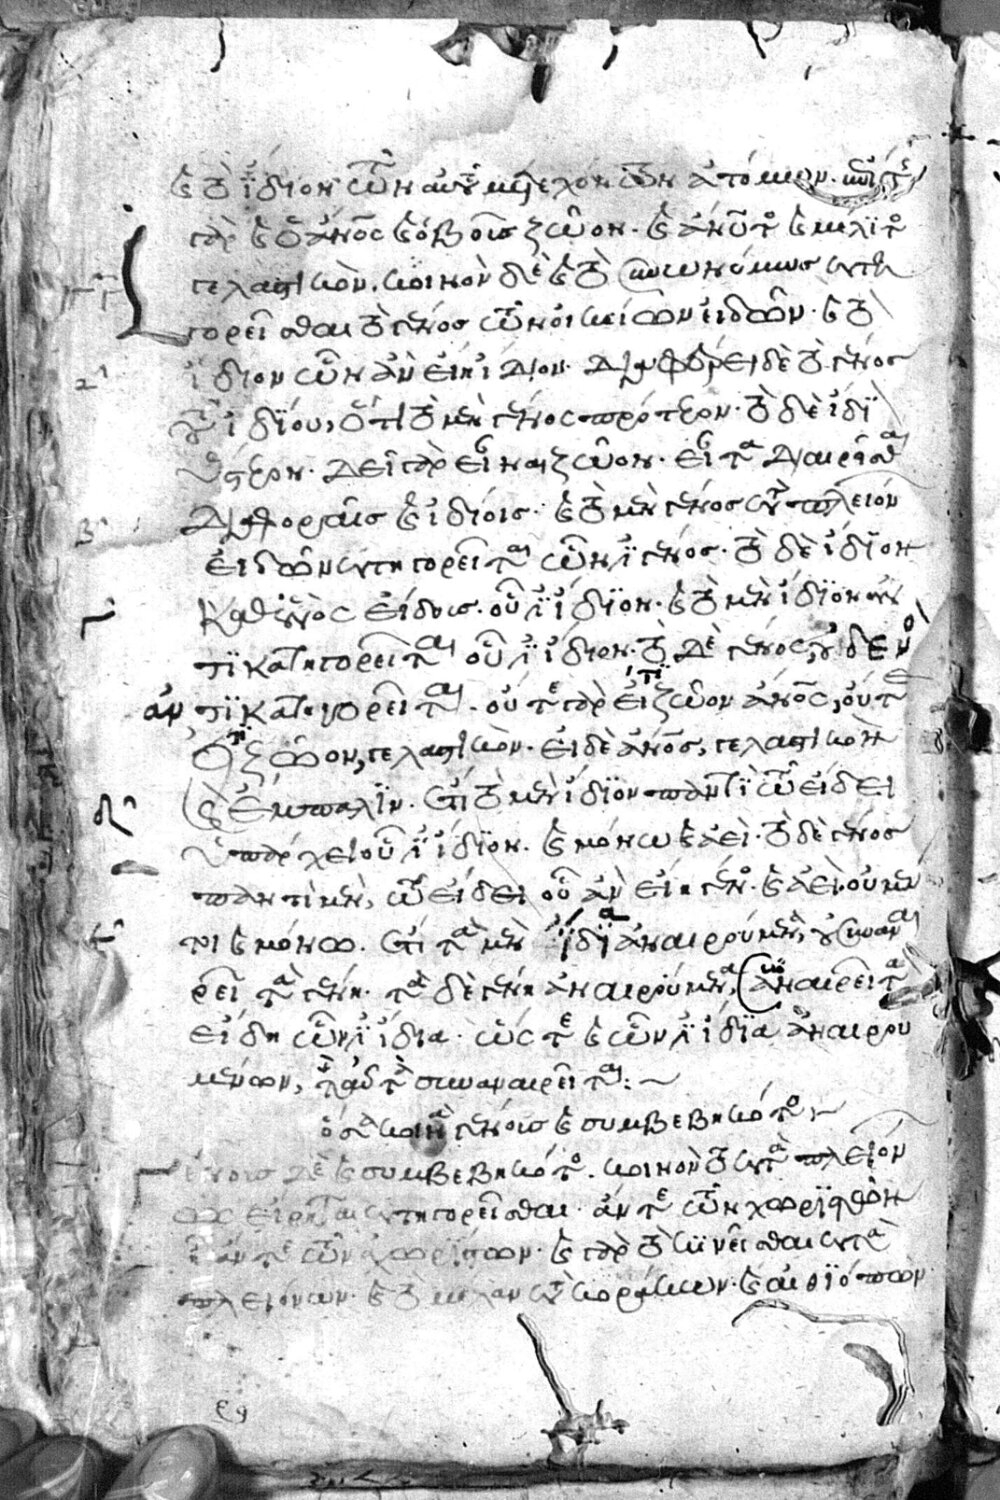 καὶ τὸ ἴδιον τῶν ὧν ἂν μετέχον τῶν ἀτόμων.
γὰρ καὶ ὁ ἄνος καὶ ὁ βοῦς ζῶον· καὶ ἄνυτος καὶ μέλιτος
γελαστικόν. κοινὸν δὲ καὶ τὸ συνωνύμως κατη
γορεῖσθαι τὸ γένος τῶν οἰκείων εἰδῶν· καὶ τὸ
ἴδιον ὧν ἂν εἴη ἴδιον. Διαφέρει δὲ τὸ γένος
τοῦ ἰδίου, ὅτι τὸ μὲν γένος πρότερον· τὸ δὲ ἴδϊον
ὕστερον. δεῖ γὰρ εἶναι ζῶον· εἶτα διαιρεῖσθαι
διαφοραῖς καὶ ἰδίοις· καὶ τὸ μὲν γένος κατὰ πλειόνων
εἰδῶν κατηγορεῖται ὧν ἐστι γένος. τὸ δὲ ἴδϊον
καθενὸς εἴδους. οὗ ἐστι ἴδϊον. καὶ τὸ μὲν ἴδϊον ἀν
τϊκατηγορεῖται οὗ ἐστι ἴδιον. τὸ δὲ γένος, οὐδενὸς
ἀντϊκατηγορεῖται. οὔτε γὰρ εἴ τι ζῶον ἄνος, οὔτε
εἴ τι ζῶον, γελαστικόν. εἰ δὲ ἄνος, γελαστικὸν
καὶ ἔμπαλϊν. ἔτι τὸ μὲν ἴδϊον παντὶ τῶ εἴδει
ὑπάρχει οὗ ἐστι ἴδϊον. καὶ μόνω καὶ ἀεὶ. τὸ δὲ γένος
παντὶ μὲν, τῶ εἴδει οὗ ἂν εἴη γένος. καὶ ἀεὶ οὐ μέν
τοι καὶ μόνω. ἔτι τὰ μὲν ἴδϊα ἀναιρούμενα, οὐ συναναι
ρεῖ τὰ γένη. τὰ δὲ γένη ἀναιρούμενα, συναναιρεῖ τὰ
εἴδη ὧν ἐστι ἴδια. ὥς τε καὶ ὧν ἐστι ἴδϊα ἀναιρου
μένων, καὶ αὐτὰ συναναιρεῖται:~
ὅσα κοινὰ γένους καὶ συμβεβηκότος
γένους δὲ καὶ συμβεβηκότος. κοινὸν τὸ κατὰ πλειόνων
ὡς εἴρηται κατηγορεῖσθαι. ἄν τε τῶν χωριστῶν
ἄν τε τῶν ἀχωρίστων. καὶ γὰρ τὸ κϊνεῖσθαι κατὰ
πλειόνων. καὶ τὸ μέλαν κατὰ κοράκων. καὶ αἰθϊόπων